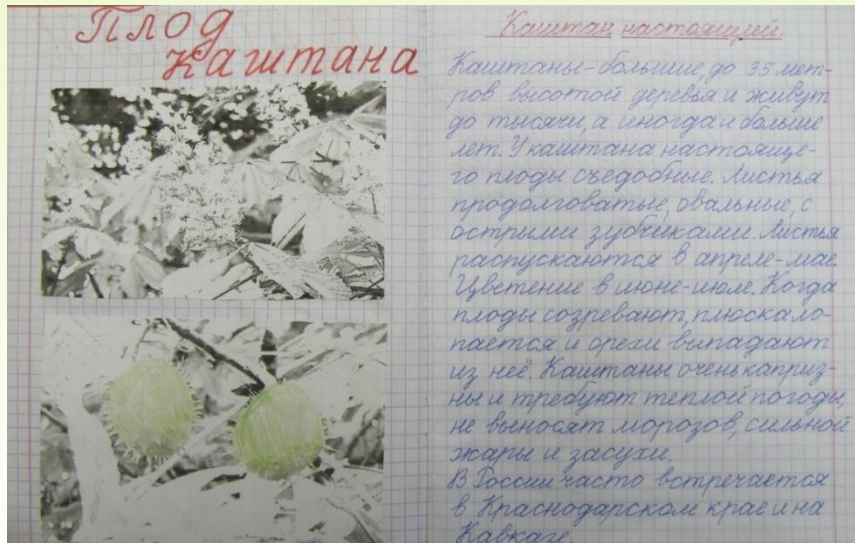 Плод
каштана
Каштан настоящий.
Каштаны-большие, до 35 мет-
ров высотой деревья и живут
до тысячи, а иногда и больше
лет. У каштана настояще-
го плоды съедобные. Листья
продолговатые, овальные, с
острыми зубчиками. Листья
распускаются в апреле-мае.
Цветение в июне-июле. Когда
плоды созревают, плюска ло-
пается и орехи выпадают
из неё. Каштаны очень каприз-
ны и требуют теплой погоды,
не выносят морозов, сильной
жары и засухи.
В России часто встречается
в Краснодарском крае и на
Кавказе.